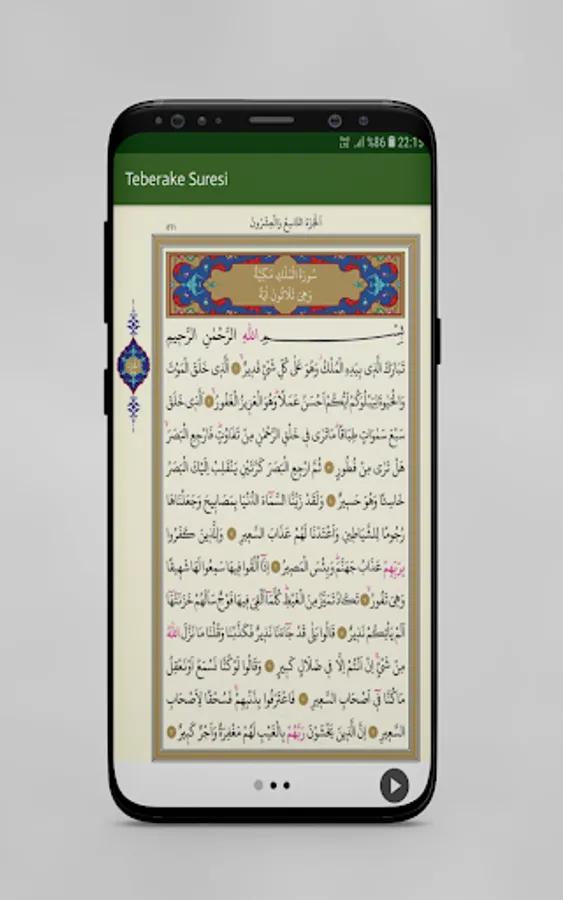 %86 22:15
Teberake Suresi
اَلْجُزْءُ التَّاسِعُ وَالْعِشْرُونَ
سُورَةُ الْمُلْكِ مَكِّيَّةٌ
وَهِيَ ثَلَاثُونَ اٰيَةً
بِسْمِ اللّٰهِ الرَّحْمٰنِ الرَّحِيمِ
تَبَارَكَ الَّذِى بِيَدِهِ الْمُلْكُ وَهُوَ عَلٰى كُلِّ شَىْءٍ قَدِيرٌ اَلَّذِى خَلَقَ الْمَوْتَ
وَالْحَيٰوةَ لِيَبْلُوَكُمْ اَيُّكُمْ اَحْسَنُ عَمَلًا وَهُوَ الْعَزِيزُ الْغَفُورُ اَلَّذِى خَلَقَ
سَبْعَ سَمٰوَاتٍ طِبَاقًا مَا تَرٰى فِى خَلْقِ الرَّحْمٰنِ مِنْ تَفَاوُتٍ فَارْجِعِ الْبَصَرَ
هَلْ تَرٰى مِنْ فُطُورٍ ثُمَّ ارْجِعِ الْبَصَرَ كَرَّتَيْنِ يَنْقَلِبْ اِلَيْكَ الْبَصَرُ
خَاسِئًا وَهُوَ حَسِيرٌ وَلَقَدْ زَيَّنَّا السَّمَاءَ الدُّنْيَا بِمَصَابِيحَ وَجَعَلْنَاهَا
رُجُومًا لِلشَّيَاطِينِ وَاَعْتَدْنَا لَهُمْ عَذَابَ السَّعِيرِ وَلِلَّذِينَ كَفَرُوا
بِرَبِّهِمْ عَذَابُ جَهَنَّمَ وَبِئْسَ الْمَصِيرُ اِذَا اُلْقُوا فِيهَا سَمِعُوا لَهَا شَهِيقًا
وَهِىَ تَفُورُ تَكَادُ تَمَيَّزُ مِنَ الْغَيْظِ كُلَّمَا اُلْقِىَ فِيهَا فَوْجٌ سَاَلَهُمْ خَزَنَتُهَا
اَلَمْ يَاْتِكُمْ نَذِيرٌ قَالُوا بَلٰى قَدْ جَاءَنَا نَذِيرٌ فَكَذَّبْنَا وَقُلْنَا مَا نَزَّلَ اللّٰهُ
مِنْ شَىْءٍ اِنْ اَنْتُمْ اِلَّا فِى ضَلَالٍ كَبِيرٍ وَقَالُوا لَوْ كُنَّا نَسْمَعُ اَوْ نَعْقِلُ
مَا كُنَّا فِى اَصْحَابِ السَّعِيرِ فَاعْتَرَفُوا بِذَنْبِهِمْ فَسُحْقًا لِاَصْحَابِ
السَّعِيرِ اِنَّ الَّذِينَ يَخْشَوْنَ رَبَّهُمْ بِالْغَيْبِ لَهُمْ مَغْفِرَةٌ وَاَجْرٌ كَبِيرٌ